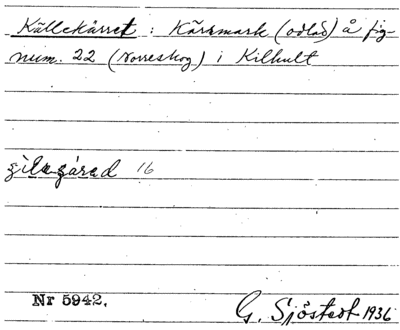 Källekärret : Kärrmark (odlad) å fig-
num. 22 (Norreskog) i Kilhult
16
Nr 5942.
G. Sjöstedt 1936